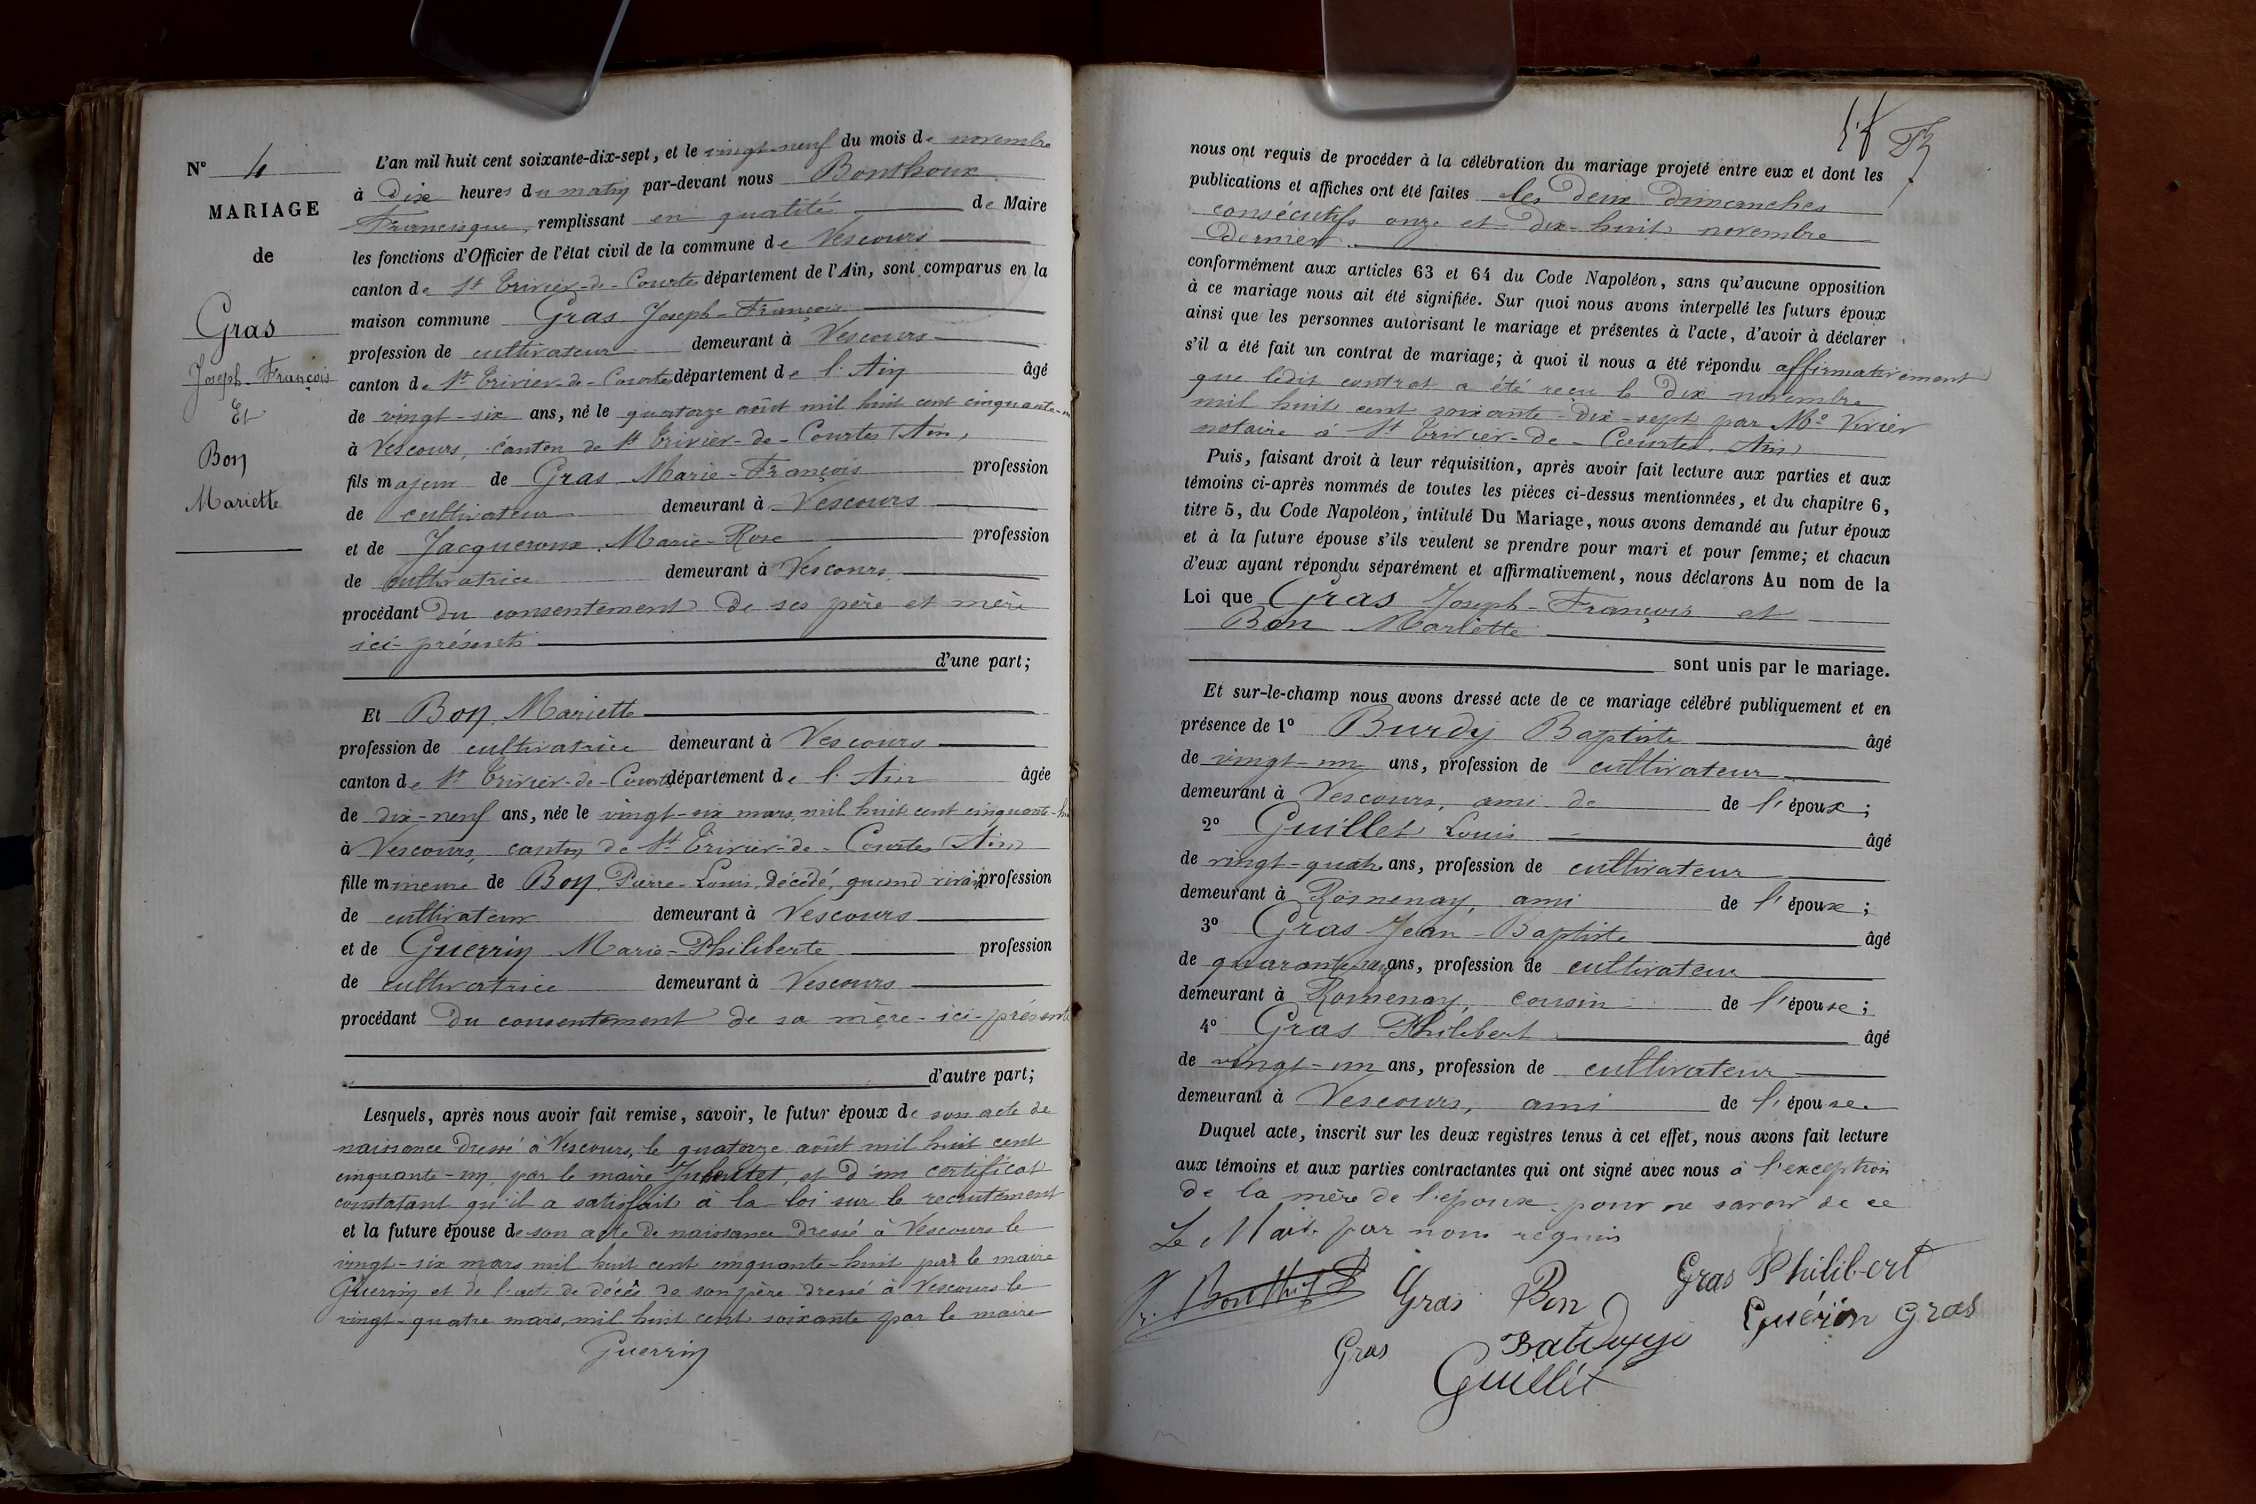 N° 4
MARIAGE
de
Gras
Joseph-François
Et
Bon
Mariette
L'an mil huit cent soixante-dix-sept, et le vingt-neuf du mois de novembre
à Dix heures du matin par-devant nous Bonthoux
Francisque, remplissant en qualité de Maire
les fonctions d'Officier de l'état civil de la commune de Vescours
canton de St Trivier-de-Courtes département de l'Ain, sont comparus en la
maison commune Gras Joseph-François
profession de cultivateur demeurant à Vescours
canton de St Trivier-de-Courtes département de l'Ain âgé
de vingt-six ans, né le quatorze août mil huit cent cinquante-un
à Vescours, canton de St Trivier-de-Courtes (Ain)
fils majeur de Gras Marie-François profession
de cultivateur demeurant à Vescours
et de Jacqueroux Marie-Rose profession
de cultivatrice demeurant à Vescours
procédant Du consentement de ses père et mère
ici-présents
d'une part;
Et Bon Mariette
profession de cultivatrice demeurant à Vescours
canton de St Trivier-de-Courtes département de l'Ain âgée
de dix-neuf ans, née le vingt-six mars mil huit cent cinquante-huit
à Vescours, canton de St Trivier-de-Courtes (Ain)
fille mineure de Bon Pierre-Louis, décédé, quand vivait profession
de cultivateur demeurant à Vescours
et de Guerrin Marie-Philiberte profession
de cultivatrice demeurant à Vescours
procédant Du consentement de sa mère-ici-présente
d'autre part;
Lesquels, après nous avoir fait remise, savoir, le futur époux de son acte de
naissance dressé à Vescours, le quatorze août mil huit cent
cinquante-un, par le maire, et d'un certificat
constatant qu'il a satisfait à la loi sur le recrutement
et la future épouse de son acte de naissance dressé à Vescours le
vingt-six mars mil huit cent cinquante-huit par le maire
Guerrin et de l'acte de décès de son père dressé à Vescours le
vingt-quatre mars, mil huit cent soixante par le maire
Guerrin
nous ont requis de procéder à la célébration du mariage projeté entre eux et dont les
publications et affiches ont été faites les deux dimanches
consécutifs onze et dix-huit novembre
dernier
conformément aux articles 63 et 64 du Code Napoléon, sans qu'aucune opposition
à ce mariage nous ait été signifiée. Sur quoi nous avons interpellé les futurs époux
ainsi que les personnes autorisant le mariage et présentes à l'acte, d'avoir à déclarer
s'il a été fait un contrat de mariage; à quoi il nous a été répondu affirmativement
que ledit contrat a été reçu le dix novembre
mil huit cent soixante-dix-sept par Me Vivier
notaire à St Trivier-de-Courtes (Ain)
Puis, faisant droit à leur réquisition, après avoir fait lecture aux parties et aux
témoins ci-après nommés de toutes les pièces ci-dessus mentionnées, et du chapitre 6,
titre 5, du Code Napoléon, intitulé Du Mariage, nous avons demandé au futur époux
et à la future épouse s'ils veulent se prendre pour mari et pour femme; et chacun
d'eux ayant répondu séparément et affirmativement, nous déclarons Au nom de la
Loi que Gras Joseph-François et
Bon Mariette
sont unis par le mariage.
Et sur-le-champ nous avons dressé acte de ce mariage célébré publiquement et en
présence de 1° Burdy Baptiste âgé
de vingt-un ans, profession de cultivateur
demeurant à Vescours, ami de de l'époux;
2° Guillet Louis âgé
de vingt-quatre ans, profession de cultivateur
demeurant à Romenay, ami de l'époux;
3° Gras Jean-Baptiste âgé
de ans, profession de cultivateur
demeurant à Romenay, cousin de l'épouse;
4° Gras Philibert âgé
de vingt-un ans, profession de cultivateur
demeurant à Vescours, ami de l'épouse
Duquel acte, inscrit sur les deux registres tenus à cet effet, nous avons fait lecture
aux témoins et aux parties contractantes qui ont signé avec nous à l'exception
de la mère de l'époux pour ne savoir de ce
Le Maire par nous requis
Gras Bon Gras Philibert
Guérin Gras
Gras
Guillet